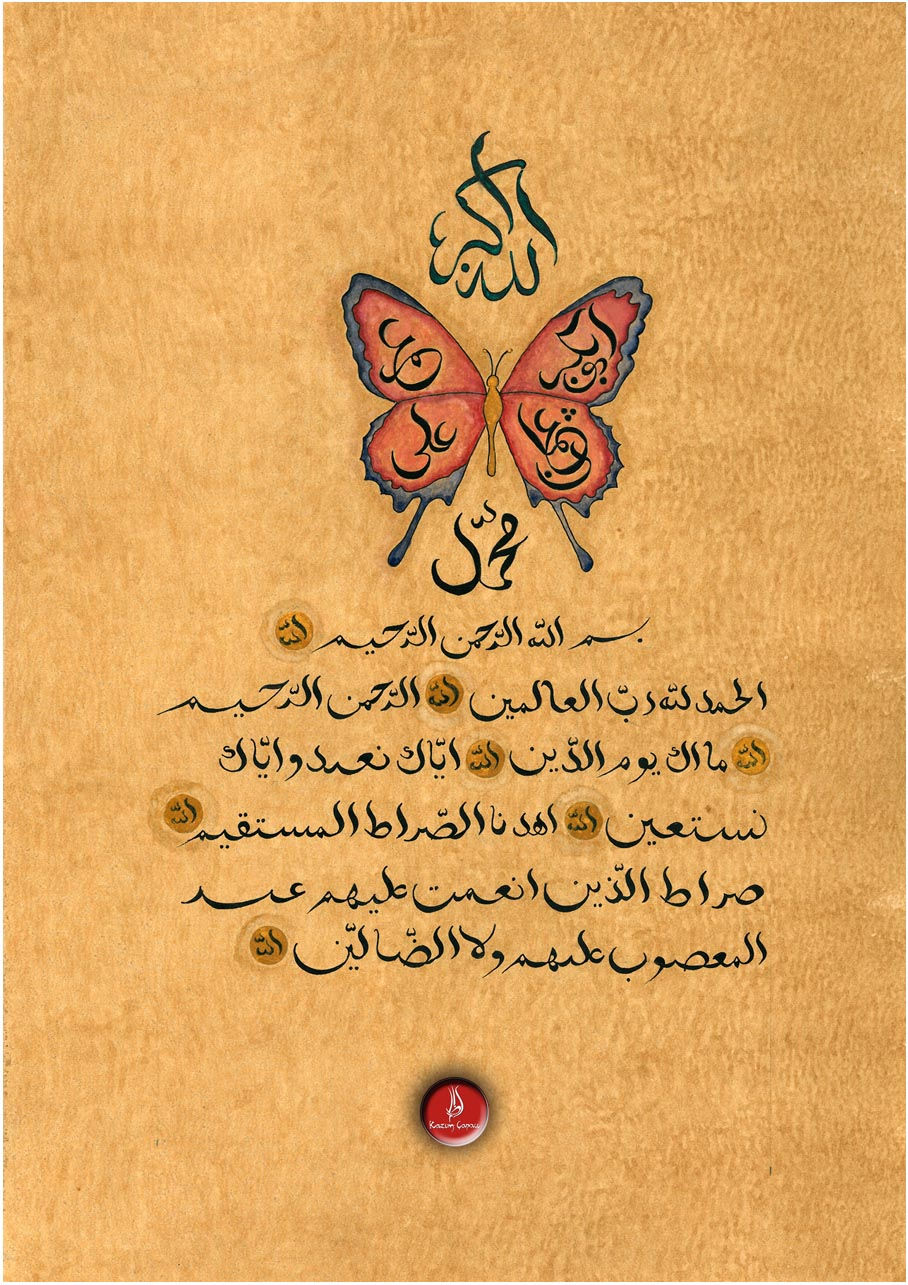 الله اكبر
ابوبكر
عمر
عثمان
على
محمّد
بسم الله الرّحمن الرّحيم الله
الحمد لله ربّ العالمين الله الرّحمن الرّحيم
الله مالك يوم الدّين الله ايّاك نعبد وايّاك
نستعين الله اهدنا الصّراط المستقيم الله
صراط الّذين انعمت عليهم غير
المعصوب عليهم ولا الضّالّين الله